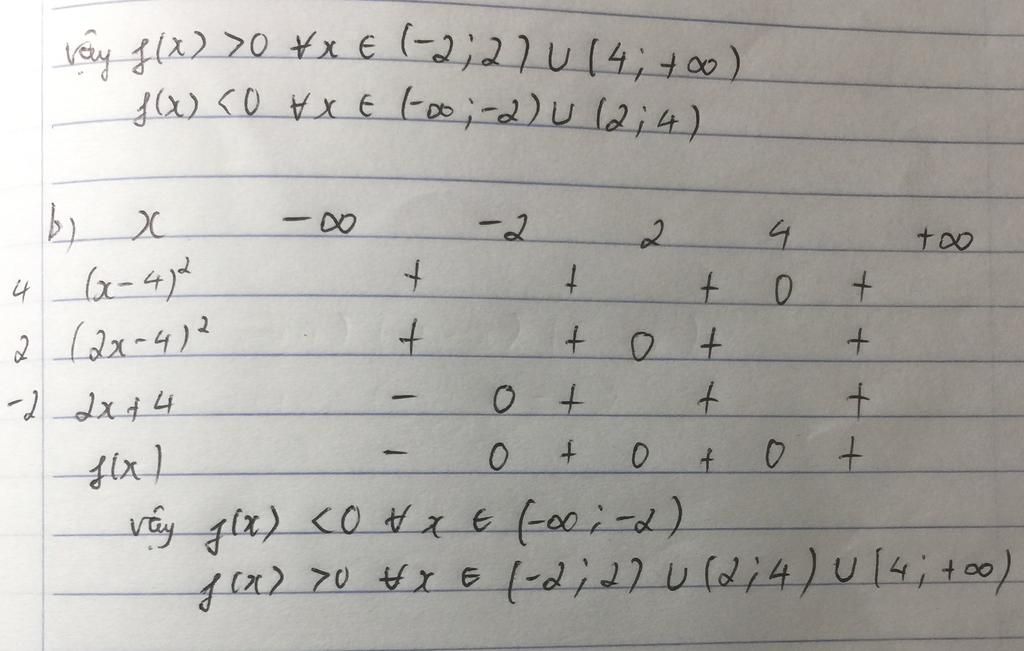 vậy f(x) >0 ∀x ∈ (-2;2) ∪ (4;+∞)
f(x) <0 ∀x ∈ (-∞;-2) ∪ (2;4)
b) x -∞ -2 2 4 +∞
4 (x-4)² + + + 0 +
2 (2x-4)² + + 0 + +
-2 2x+4 - 0 + + +
f(x) - 0 + 0 + 0 +
vậy f(x) <0 ∀x ∈ (-∞;-2)
f(x) >0 ∀x ∈ (-2;2) ∪ (2;4) ∪ (4;+∞)